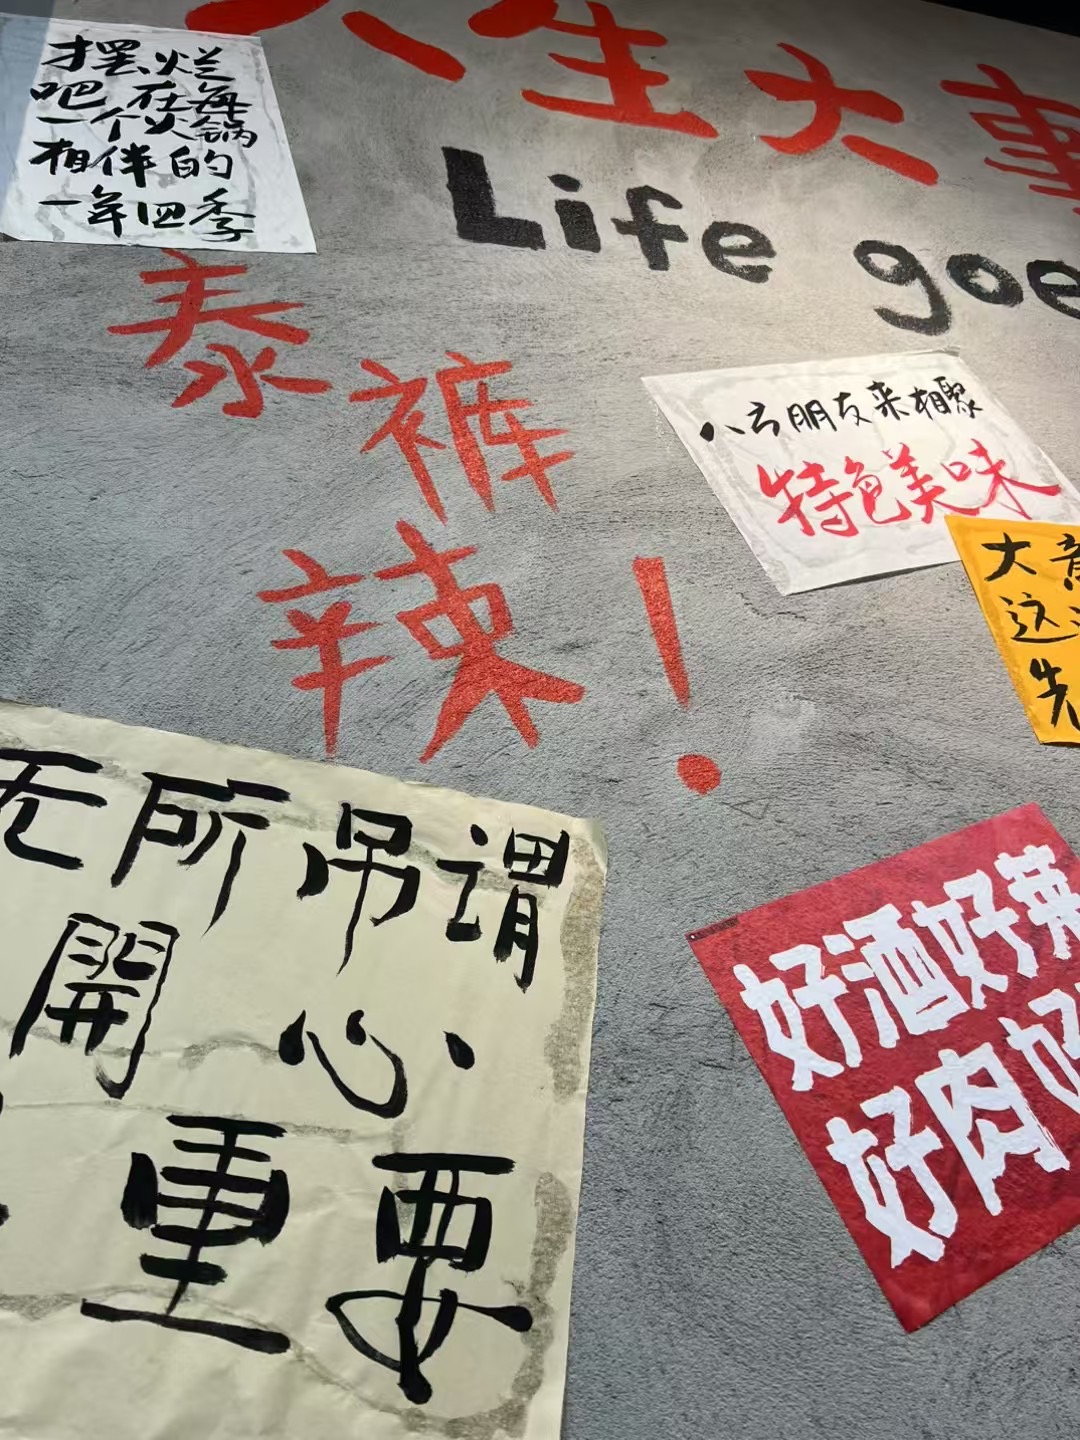 人生大事
Life goe
摆烂
吧 在每
一个火锅
相伴的
一年四季
泰
裤
辣！
八方朋友来相聚
特色美味
大
这
先
无所吊谓
開心、
重要
好酒好菜
好肉好